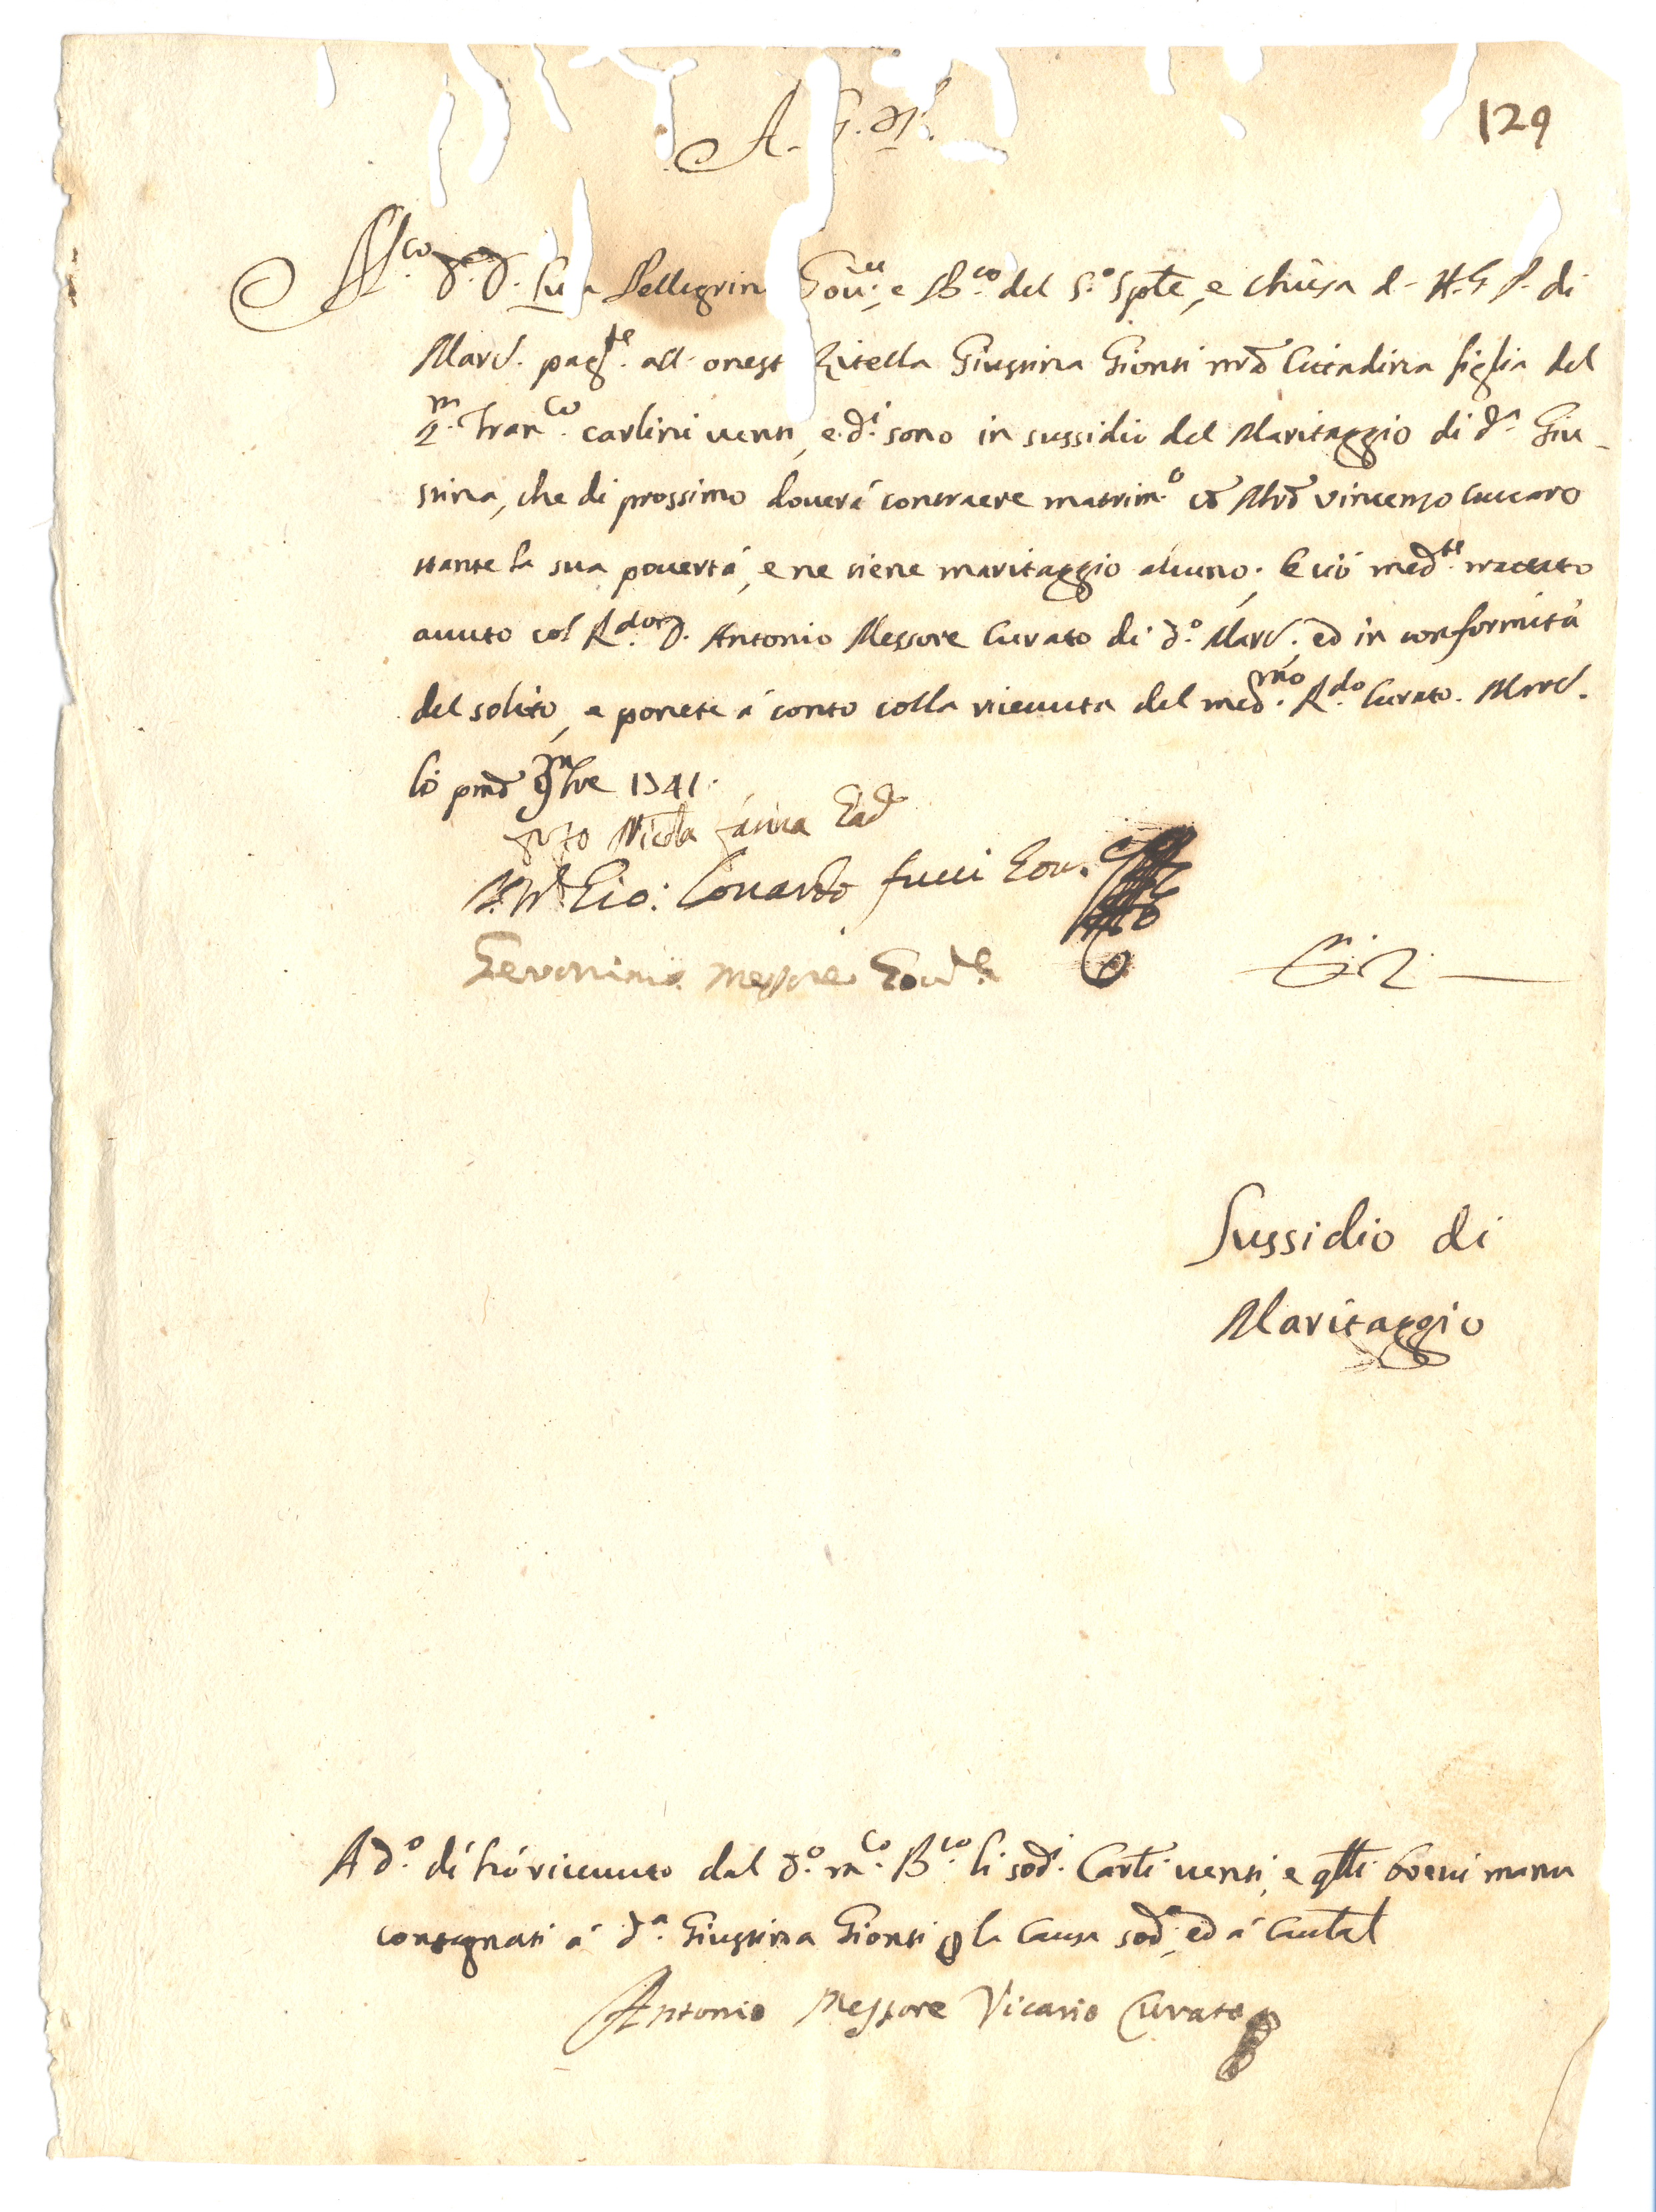 A. G. M.
129
M.co D. D. Lu a Pellegrin Gou.re, e B.co del S.o Spte, e Chiesa d. A. G. P. di
Marcl. pag.te all onest Zitella Giustina Gionti nrã Cittadina figlia del
q.m Fran.co carlini uenti, e d.i sono in sussidio del Maritaggio di d.a Giu-
stina, che di prossimo douerà contraere matrim.o cõ Mrõ Vincenzo Cuccaro
stante la sua pouertà, e ne tiene maritaggio alcuno. E ciò med.te trattato
auuto col R.do D. Antonio Messore Curato di d.o Marcl., ed in conformità
del solito, e ponete à conto colla riceuuta del med.mo R.do Curato. Marcl.
li pmõ 9mbre 1741.
Nicola
Gio: Lonardo fucci Gou.
Geronimo Messore Gou.re
Sussidio di
Maritaggio
A d.o di hò riceuuto dal d.o m.co B.co li sod.i Carli uenti, e qlli breui manu
consegnati à d.a Giustina Gionti p la causa sod.a, ed à Cautel
Antonio Messore Vicario Curato